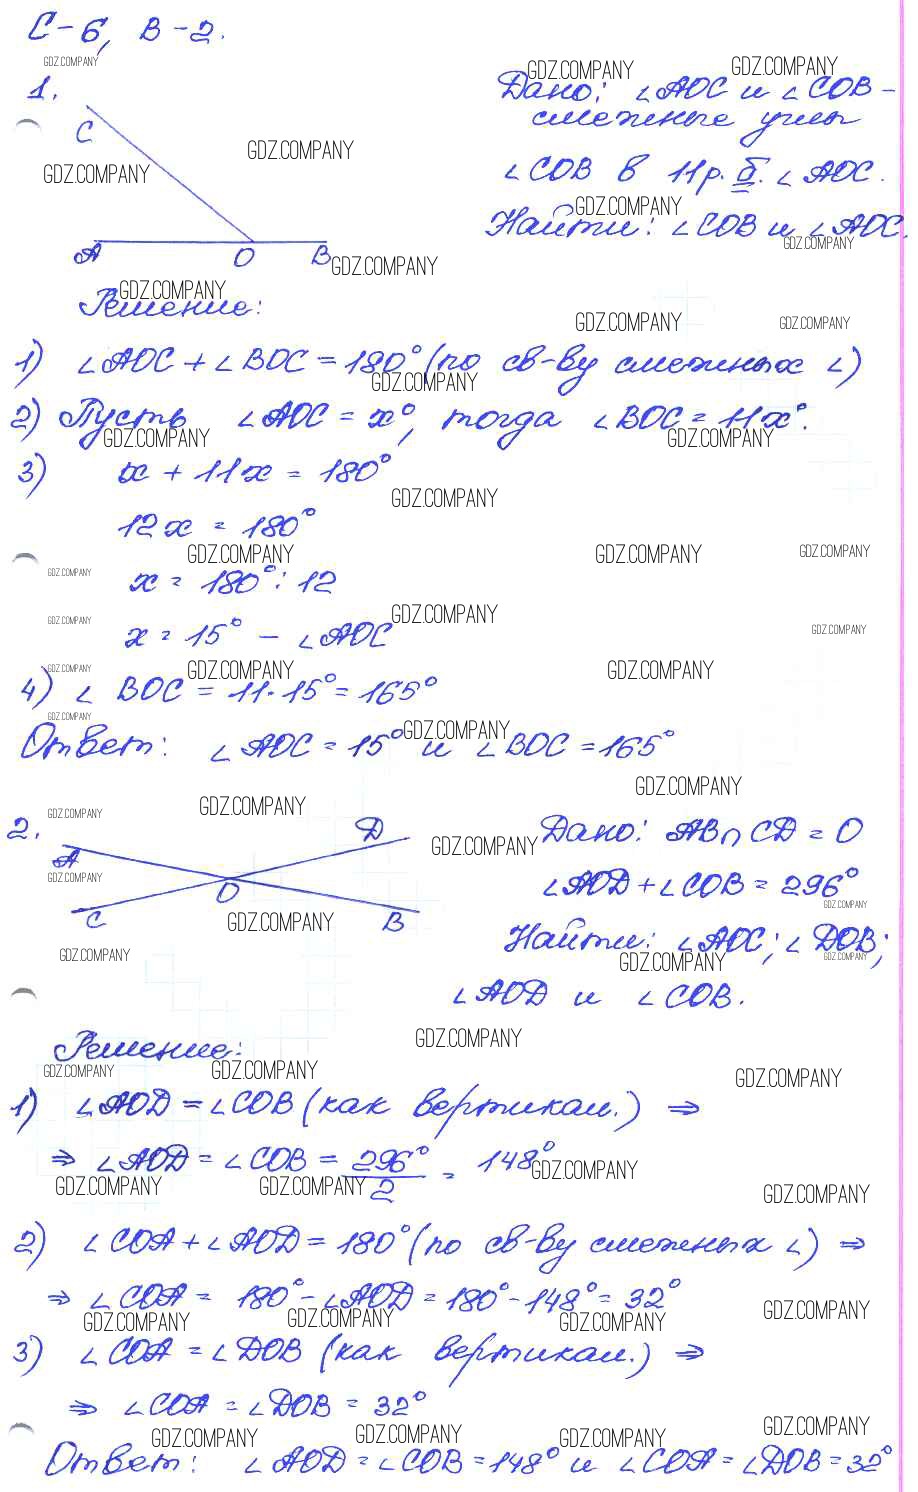 С-6, В-2.
GDZ.COMPANY
1.
Дано: ∠AOC и ∠COB -
смежные углы
∠COB в 11 р. б. ∠AOC.
Найти: ∠COB и ∠AOC.
C
A O B
Решение:
1) ∠AOC + ∠BOC = 180° (по св-ву смежных ∠)
2) Пусть ∠AOC = x°, тогда ∠BOC = 11x°.
3) x + 11x = 180°
12x = 180°
x = 180° : 12
x = 15° - ∠AOC
4) ∠BOC = 11·15° = 165°
Ответ: ∠AOC = 15° и ∠BOC = 165°
2.
A D
O
C B
Дано: AB∩CD = O
∠AOD + ∠COB = 296°
Найти: ∠AOC; ∠DOB;
∠AOD и ∠COB.
Решение:
1) ∠AOD = ∠COB (как вертикал.) ⇒
⇒ ∠AOD = ∠COB = 296°/2 = 148°
2) ∠COA + ∠AOD = 180° (по св-ву смежных ∠) ⇒
⇒ ∠COA = 180° - ∠AOD = 180° - 148° = 32°
3) ∠COA = ∠DOB (как вертикал.) ⇒
⇒ ∠COA = ∠DOB = 32°
Ответ: ∠AOD = ∠COB = 148° и ∠COA = ∠DOB = 32°